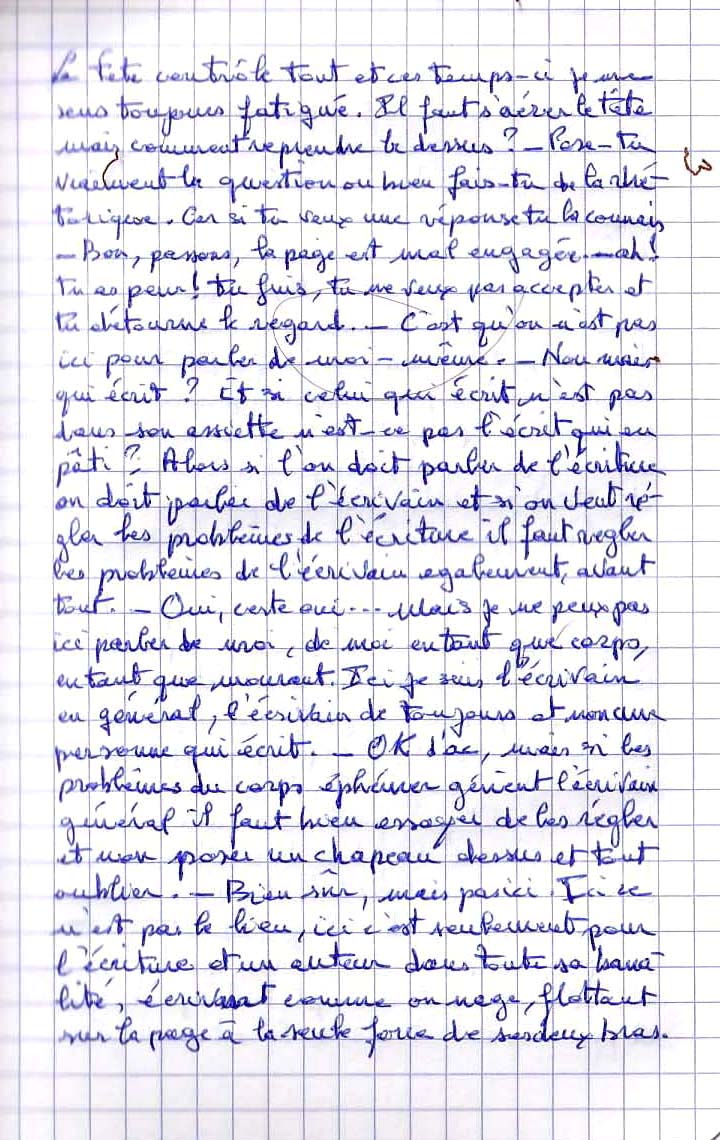 La tête contrôle tout et ces temps-ci je me
sens toujours fatigué. Il faut s'aérer la tête
mais comment reprendre le dessus ? – Pose-tu
vraiment la question ou bien fais-tu de la rhé-
torique. Car si tu veux une réponse tu la connais
– Bon, passons, la page est mal engagée. – ah !
tu as peur ! tu fuis, tu ne veux pas accepter et
tu détourne le regard. – C'est qu'on n'est pas
ici pour parler de moi-même. – Non mais
qui écrit ? Et si celui qui écrit n'est pas
dans son assiette n'est-ce pas l'écrit qui en
pâti ? Alors si l'on doit parler de l'écriture
on doit parler de l'écrivain et si on veut ré-
gler les problèmes de l'écriture il faut regler
les problèmes de l'écrivain egalement, avant
tout. – Oui, certe oui... Mais je ne peux pas
ici parler de moi, de moi en tant que corps,
en tant que mourant. Ici je suis l'écrivain
en général, l'écrivain de toujours et non une
personne qui écrit. – OK d'ac, mais si les
problèmes du corps éphémer gênent l'écrivain
général il faut bien essayer de les régler
et non poser un chapeau dessus et tout
oublier. – Bien sûr, mais pas ici. Ici ce
n'est pas le lieu, ici c'est seulement pour
l'écriture et un auteur dans toute sa bana-
lité, écrivant comme on nage, flottant
sur la page à la seule force de ses deux bras.